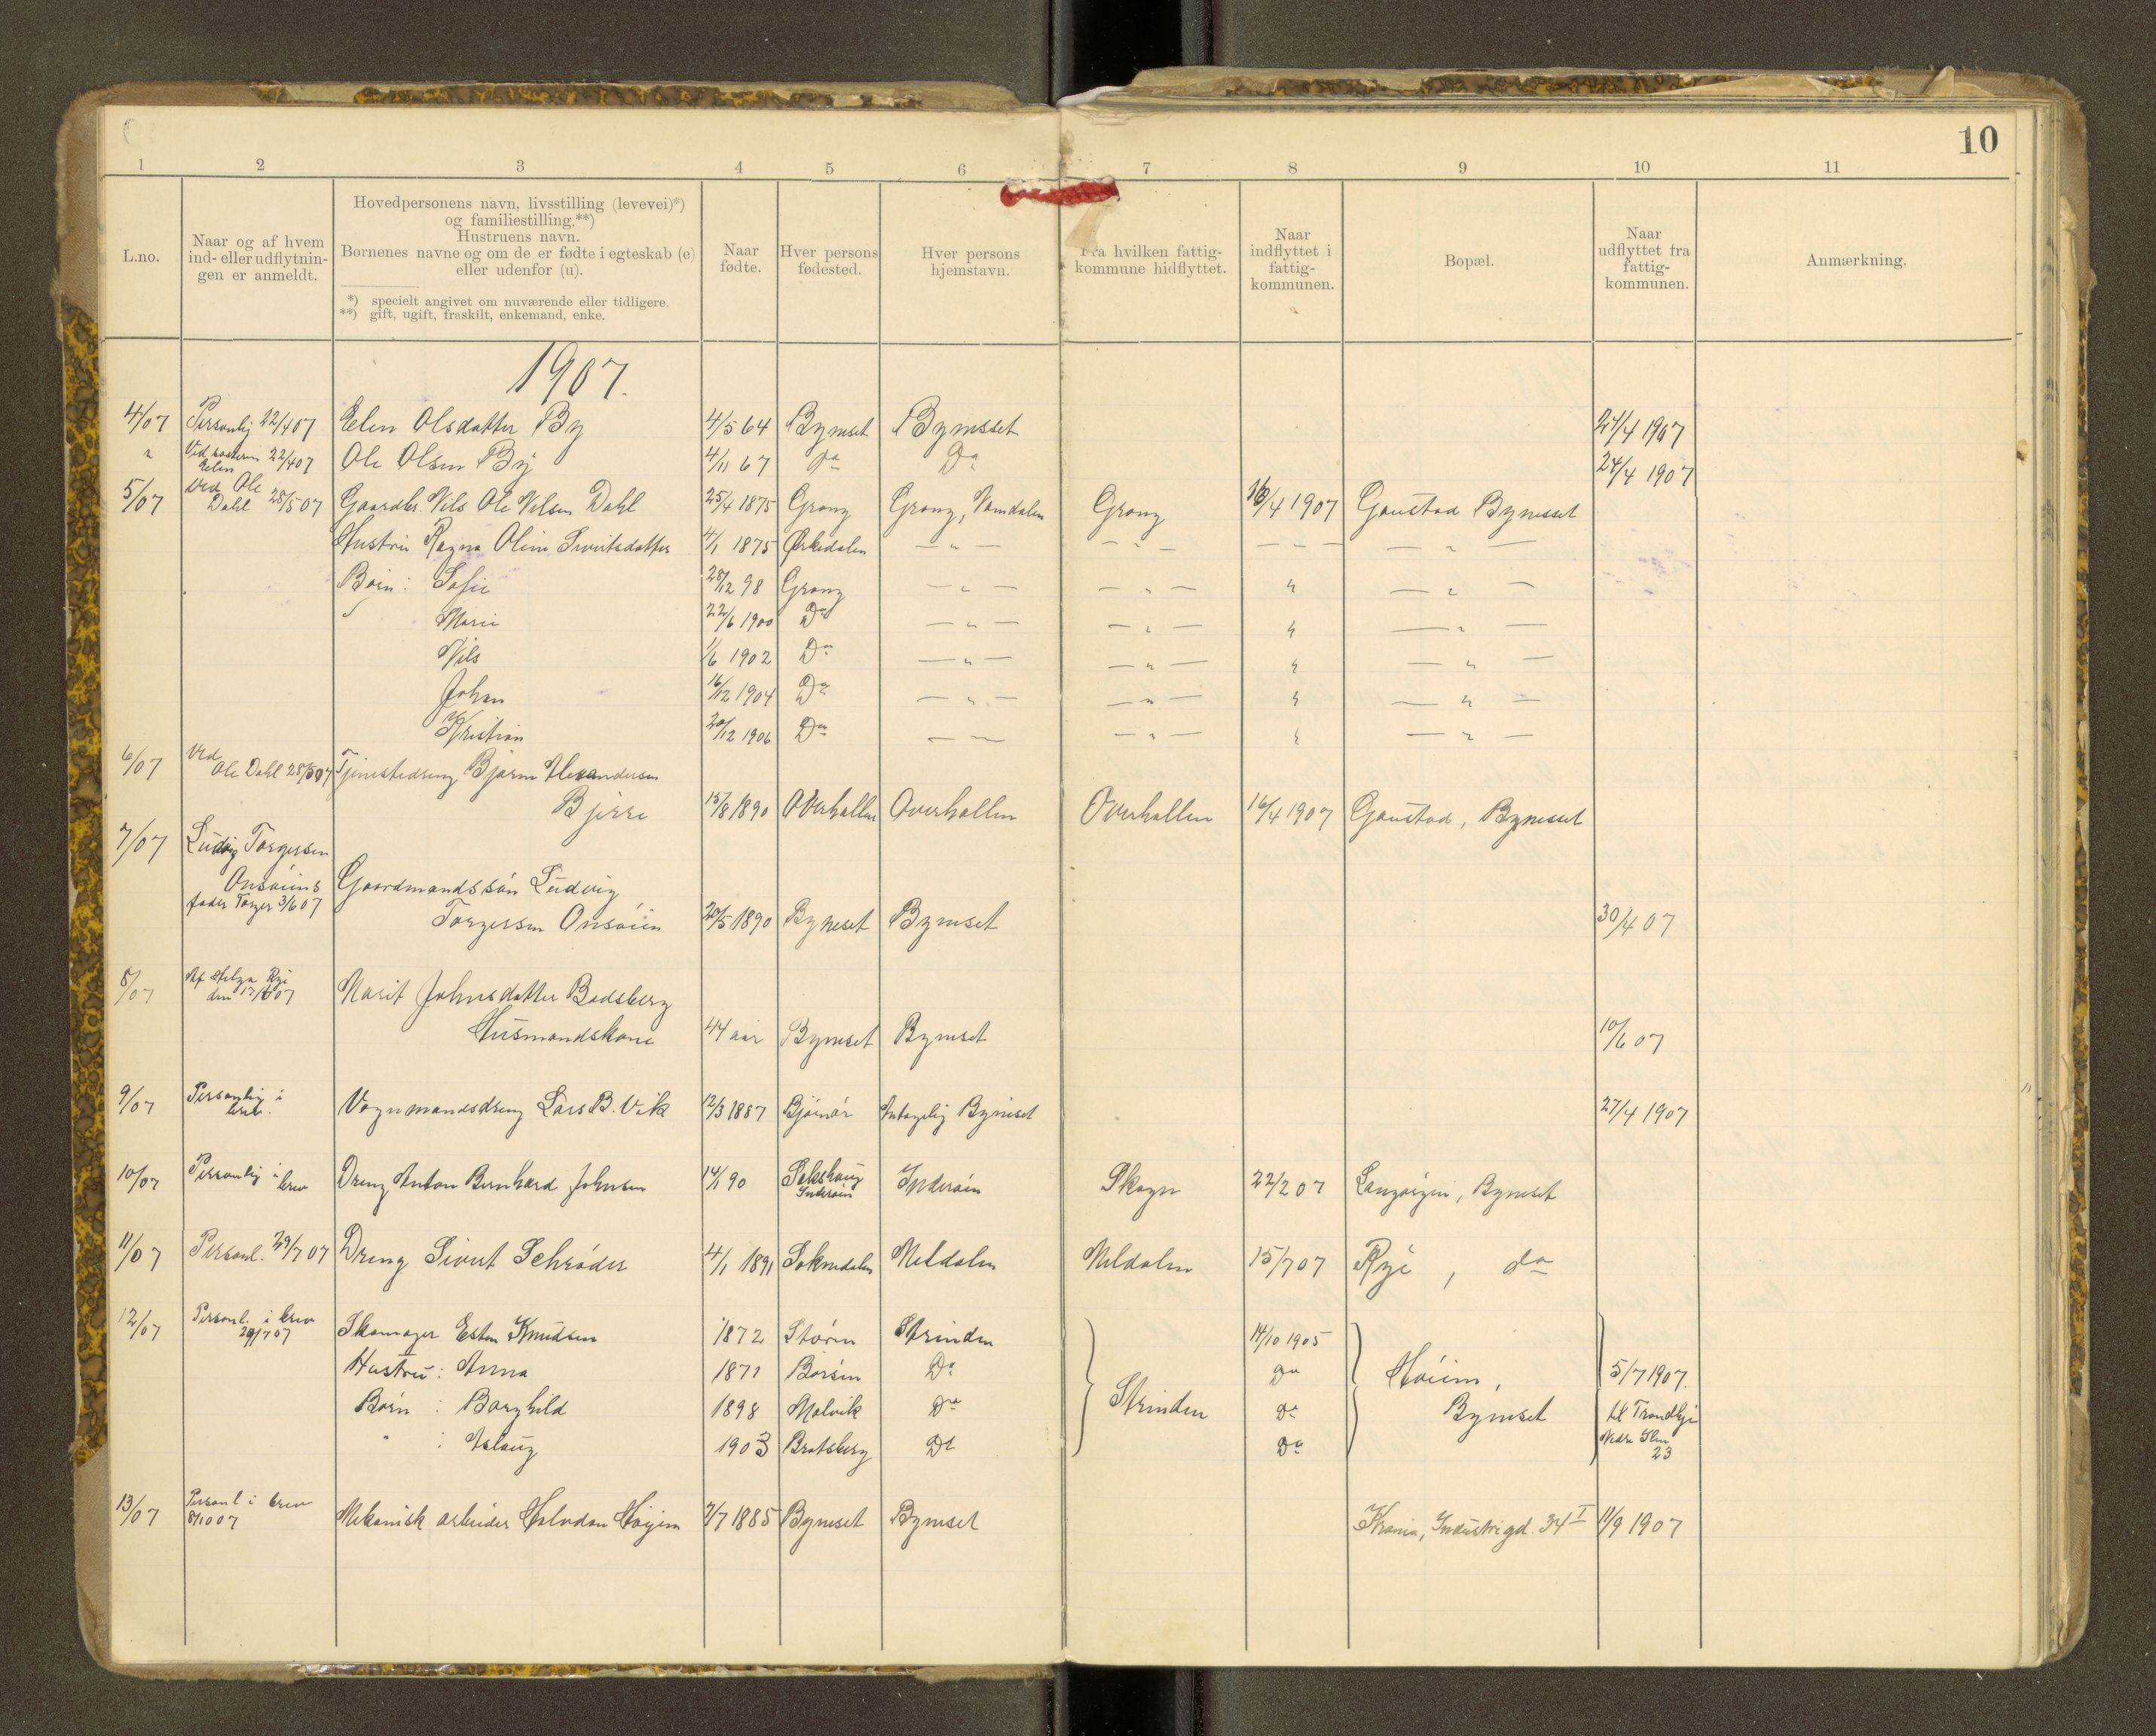 10
1 2 3 4 5 6 7 8 9 10 11
L.no.
Naar og af hvem
ind- eller udflytnin-
gen er anmeldt.
Hovedpersonens navn, livsstilling (levevei)*)
og familiestilling.**)
Hustruens navn.
Børnenes navne og om de er fødte i egteskab (e)
eller udenfor (u).
*) specielt angivet om nuværende eller tidligere.
**) gift, ugift, fraskilt, enkemand, enke.
Naar
fødte.
Hver persons
fødested.
Hver persons
hjemstavn.
Fra hvilken fattig-
kommune hidflyttet.
Naar
indflyttet i
fattig-
kommunen.
Bopæl.
Naar
udflyttet fra
fattig-
kommunen.
Anmærkning.
1907.
4/07 Personlig 22/4 07 Elen Olsdatter By 4/5 64 Bynesset Bynesset 24/4 1907
" Ved søsteren Elen 22/4 07 Ole Olsen By 4/11 67 Do Do 24/4 1907
5/07 Ved Ole Dahl 28/5 07 Gaardbr. Nils Ole Nilsen Dahl 25/4 1875 Grong Grong, Namdalen Grong 16/4 1907 Gaustad Bynesset
Hustru Ragna Oline Sivertsdatter 4/1 1875 Ørkedalen — " — — " — — — — — " —
Børn: Sofie 28/12 98 Grong — " — — " — " — " —
Marie 22/6 1900 Do — " — — " — " — " —
Nils 1/6 1902 Do — " — — " — " — " —
Johan 16/12 1904 Do — " — — " — " — " —
Kristian 20/12 1906 Do — — — " — " — " —
6/07 Ved Ole Dahl 28/5 07 Tjenestedreng Bjarne Alexandersen
Bjerre 15/8 1890 Overhallen Overhallen Overhallen 16/4 1907 Gaustad, Bynesset
7/07 Ludvig Torgersen
Onsøiens Gaardmandssøn Ludvig
fader Torger 3/6 07 Torgersen Onsøien 20/5 1890 Byneset Byneset 30/4 07
8/07 Af Helga Rye
den 17/6 07 Marit Johnsdatter Bodsberg
Husmandskone 44 aar Byneset Byneset 10/6 07
9/07 Personlig i brev. Vognmandsdreng Lars B. Vik 12/3 1887 Bjørnør Antagelig Byneset 27/4 1907
10/07 Personlig i brev Dreng Anton Bernhard Johnsen 14/1 90 Sakshaug Inderøen Inderøen Skogn 22/2 07 Langørgen, Byneset
11/07 Personl. 29/7 07 Dreng Sivert Schrøder 4/1 1891 Soknedalen Meldalen Meldalen 15/7 07 Rye, do
12/07 Personl. i brev
29/7 07 Skomager Esten Knudsen 1872 Støren Strinden 14/10 1905
Hustru: Anna 1871 Børsen Do Do Høiem, 5/7 1907.
Børn: Borghild 1898 Malvik Do Strinden Do Byneset til Trondhj.
" : Aslaug 1903 Bratsberg Do Do Nedre Ilen
23
13/07 Personl i brev
8/10 07 Mekanisk arbeider Halvdan Høiem 7/7 1885 Byneset Byneset Krania, Industrigd. 34 I 11/9 1907